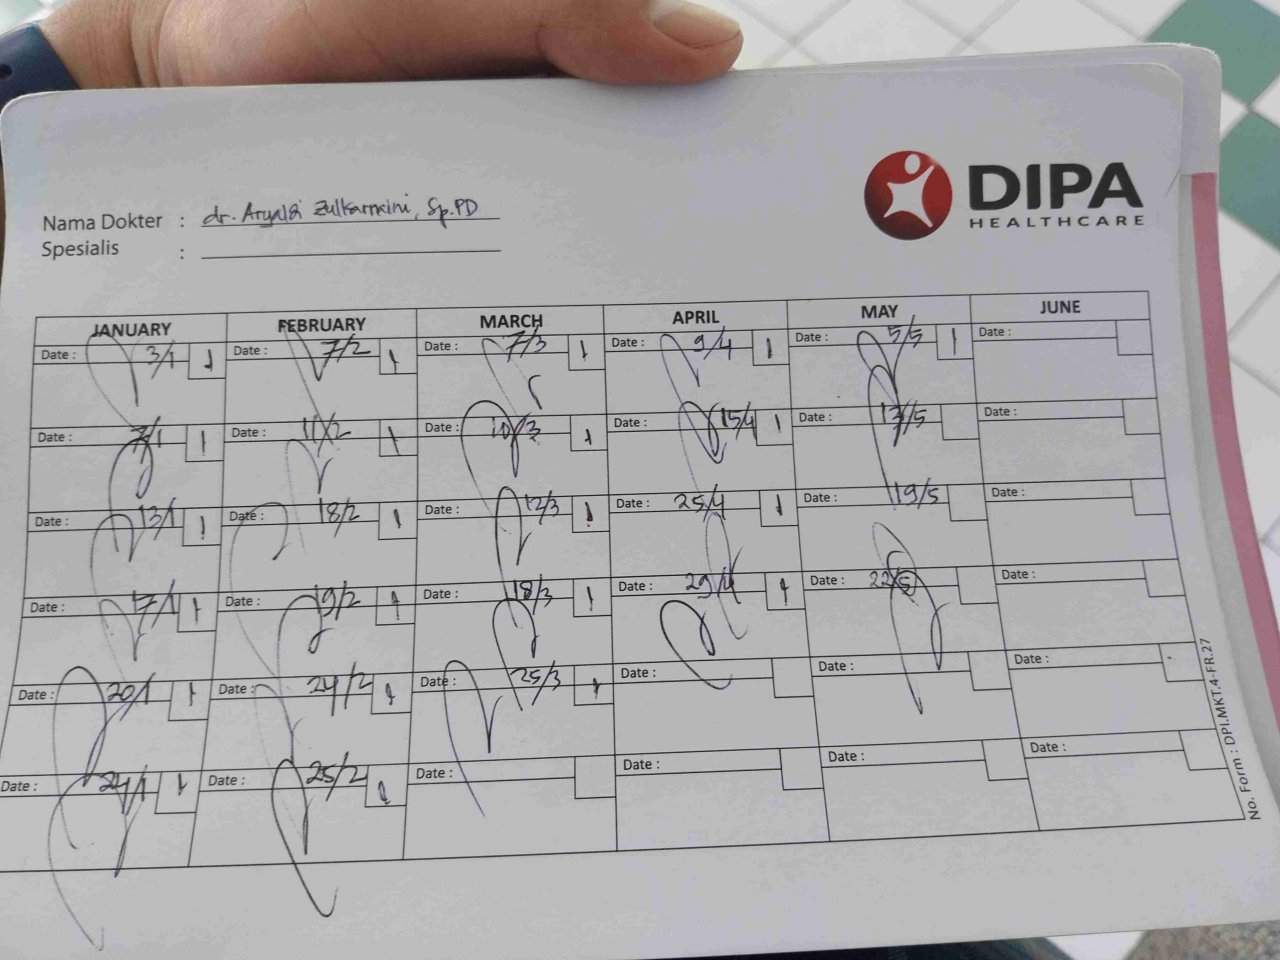 DIPA
HEALTHCARE
Nama Dokter : dr. Aryaldi Zulkarnaini, Sp.PD
Spesialis :
JANUARY FEBRUARY MARCH APRIL MAY JUNE
Date : 3/1 1 Date : 7/2 1 Date : 7/3 1 Date : 9/4 1 Date : 5/5 1 Date :
Date : 7/1 1 Date : 11/2 1 Date : 10/3 1 Date : 15/4 1 Date : 13/5 Date :
Date : 13/1 1 Date : 18/2 1 Date : 12/3 1 Date : 25/4 1 Date : 19/5 Date :
Date : 17/1 1 Date : 19/2 1 Date : 18/3 1 Date : 29/4 1 Date : 22/5 Date :
Date : 20/1 1 Date : 24/2 1 Date : 25/3 1 Date : Date : Date :
Date : 24/1 1 Date : 25/2 1 Date : Date : Date : Date :
No. Form : DPI.MKT.4-FR.27